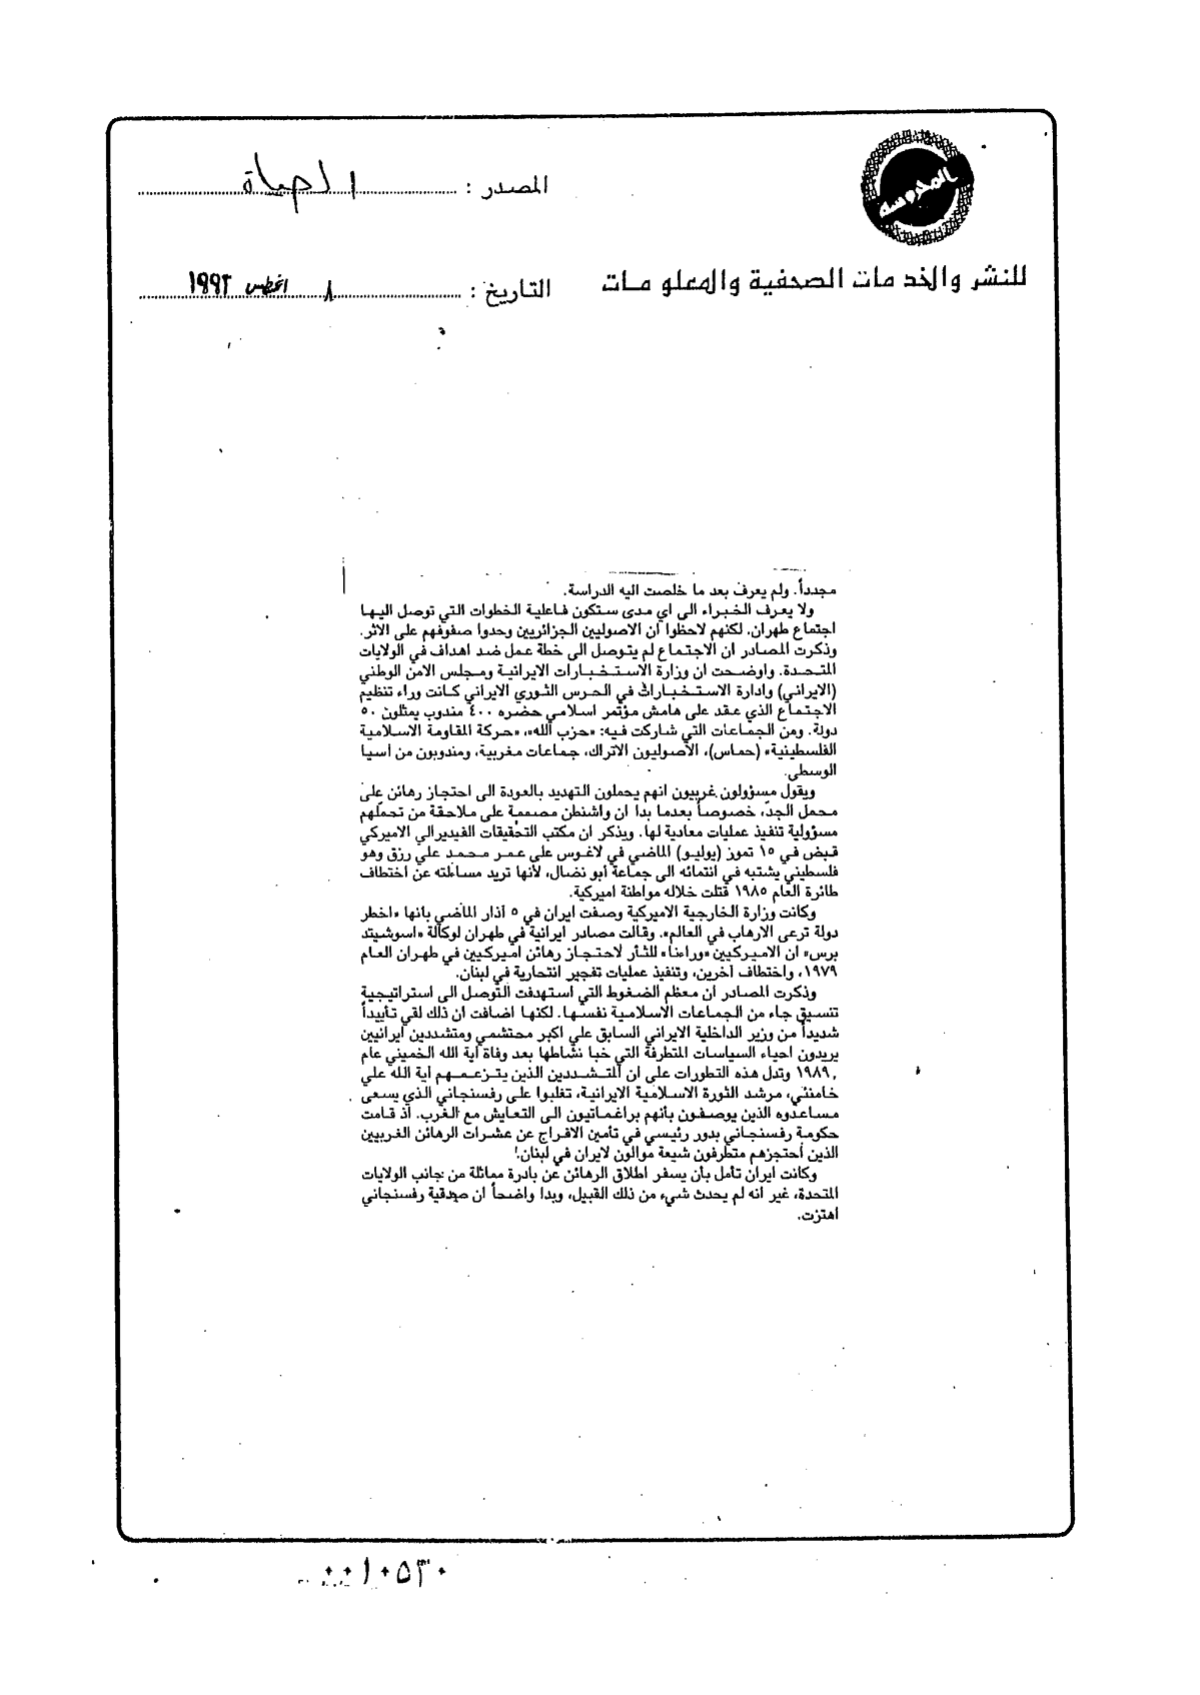 المحروسة
المصدر : الحياة
للنشر والخدمات الصحفية والمعلومات
التاريخ : ٨ اغسطس ١٩٩٣
مجدداً. ولم يعرف بعد ما خلصت اليه الدراسة.
ولا يعرف الخبراء الى اي مدى ستكون فاعلية الخطوات التي توصل اليها
اجتماع طهران. لكنهم لاحظوا ان الاصوليين الجزائريين وحدوا صفوفهم على الاثر.
وذكرت المصادر ان الاجتماع لم يتوصل الى خطة عمل ضد اهداف في الولايات
المتحدة. واوضحت ان وزارة الاستخبارات الايرانية ومجلس الامن الوطني
(الايراني) وادارة الاستخبارات في الحرس الثوري الايراني كانت وراء تنظيم
الاجتماع الذي عقد على هامش مؤتمر اسلامي حضره ٤٠٠ مندوب يمثلون ٥٠
دولة. ومن الجماعات التي شاركت فيه: «حزب الله»، «حركة المقاومة الاسلامية
الفلسطينية» (حماس)، الاصوليون الاتراك، جماعات مغربية، ومندوبون من آسيا
الوسطى.
ويقول مسؤولون غربيون انهم يحملون التهديد بالعودة الى احتجاز رهائن على
محمل الجدّ، خصوصاً بعدما بدا ان واشنطن مصممة على ملاحقة من تحمّلهم
مسؤولية تنفيذ عمليات معادية لها. ويذكر ان مكتب التحقيقات الفيديرالي الاميركي
قبض في ١٥ تموز (يوليو) الماضي في لاغوس على عمر محمد علي رزق وهو
فلسطيني يشتبه في انتمائه الى جماعة ابو نضال، لأنها تريد مساءلته عن اختطاف
طائرة العام ١٩٨٥ قتلت خلاله مواطنة اميركية.
وكانت وزارة الخارجية الاميركية وصفت ايران في ٥ آذار الماضي بانها «اخطر
دولة ترعى الارهاب في العالم». وقالت مصادر ايرانية في طهران لوكالة «اسوشيتد
برس» ان الاميركيين «وراءنا» للثأر لاحتجاز رهائن اميركيين في طهران العام
١٩٧٩، واختطاف آخرين، وتنفيذ عمليات تفجير انتحارية في لبنان.
وذكرت المصادر ان معظم الضغوط التي استهدفت التوصل الى استراتيجية
تنسيق جاء من الجماعات الاسلامية نفسها. لكنها اضافت ان ذلك لقي تأييداً
شديداً من وزير الداخلية الايراني السابق علي اكبر محتشمي ومتشددين ايرانيين
يريدون احياء السياسات المتطرفة التي خبا نشاطها بعد وفاة آية الله الخميني عام
١٩٨٩, وتدل هذه التطورات على ان المتشددين الذين يتزعمهم آية الله علي
خامنئي، مرشد الثورة الاسلامية الايرانية، تغلبوا على رفسنجاني الذي يسعى
مساعدوه الذين يوصفون بأنهم براغماتيون الى التعايش مع الغرب. اذ قامت
حكومة رفسنجاني بدور رئيسي في تأمين الافراج عن عشرات الرهائن الغربيين
الذين احتجزهم متطرفون شيعة موالون لايران في لبنان.
وكانت ايران تأمل بأن يسفر اطلاق الرهائن عن بادرة مماثلة من جانب الولايات
المتحدة، غير انه لم يحدث شيء من ذلك القبيل، وبدا واضحاً ان صدقية رفسنجاني
اهتزت.
٠٠١٠٥٣٠